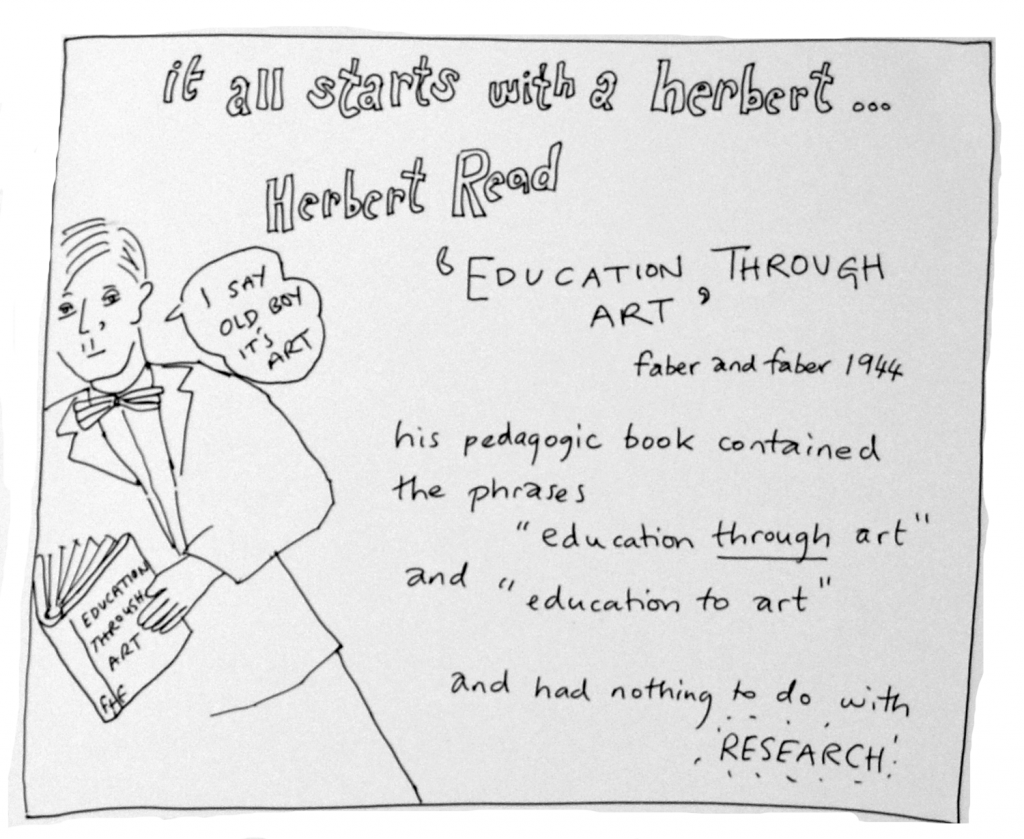 it all starts with a herbert...
Herbert Read
I SAY
OLD BOY
IT'S
ART
'EDUCATION THROUGH
ART'
faber and faber 1944
his pedagogic book contained
the phrases
"education through art"
and "education to art"
EDUCATION
THROUGH
ART
F+F
and had nothing to do with
RESEARCH